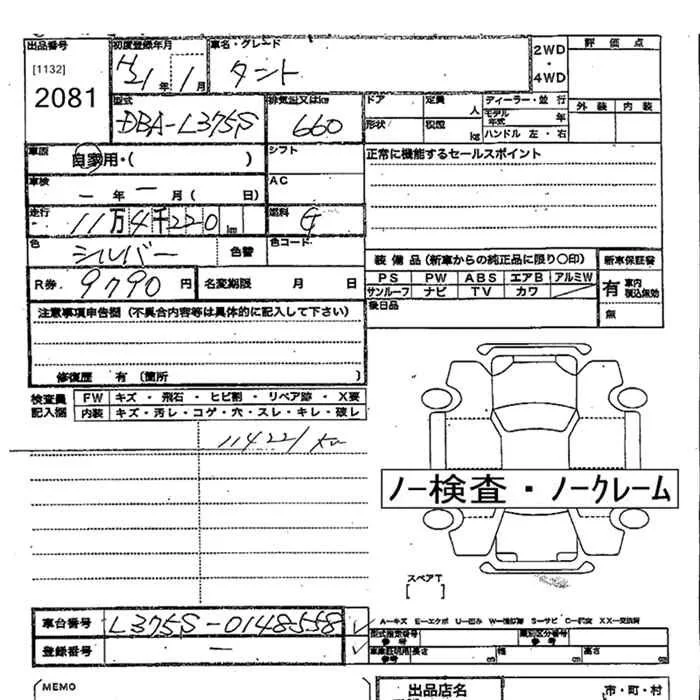 出品番号 初度登録年月 車名・グレード 2WD・4WD 評価点
[1132] H21年1月 タント
2081
型式 排気量又はkw ドア 定員 人 ディーラー・並行 外装 内装
DBA-L375S 660 形状 積載 kg モデル年式 年
ハンドル 左・右
車歴 自家用・( ) シフト 正常に機能するセールスポイント
車検 AC
一年 一月( 日)
走行 11万4千220km 燃料 G
色 シルバー 色替 色コード
装備品(新車からの純正品に限り○印) 新車保証書
R券 9790円 名変期限 月 日 PS PW ABS エアB アルミW 有 車内 税込無効
サンルーフ ナビ TV カワ
後日品 無
注意事項申告欄(不具合内容等は具体的に記入して下さい)
修復歴 有〔箇所 〕
検査員記入欄 FW キズ・飛石・ヒビ割・リペア跡・X要
内装 キズ・汚レ・コゲ・穴・スレ・キレ・破レ
114221km
ノー検査・ノークレーム
スペアT
[ ]
車台番号 L375S-0148558 A－キズ E－エクボ U－凹ミ S－サビ
型式指定番号 参考 類別区分番号 参考
登録番号 － 参考 長さ cm 幅 cm 高さ cm
(MEMO 出品店名 市・町・村